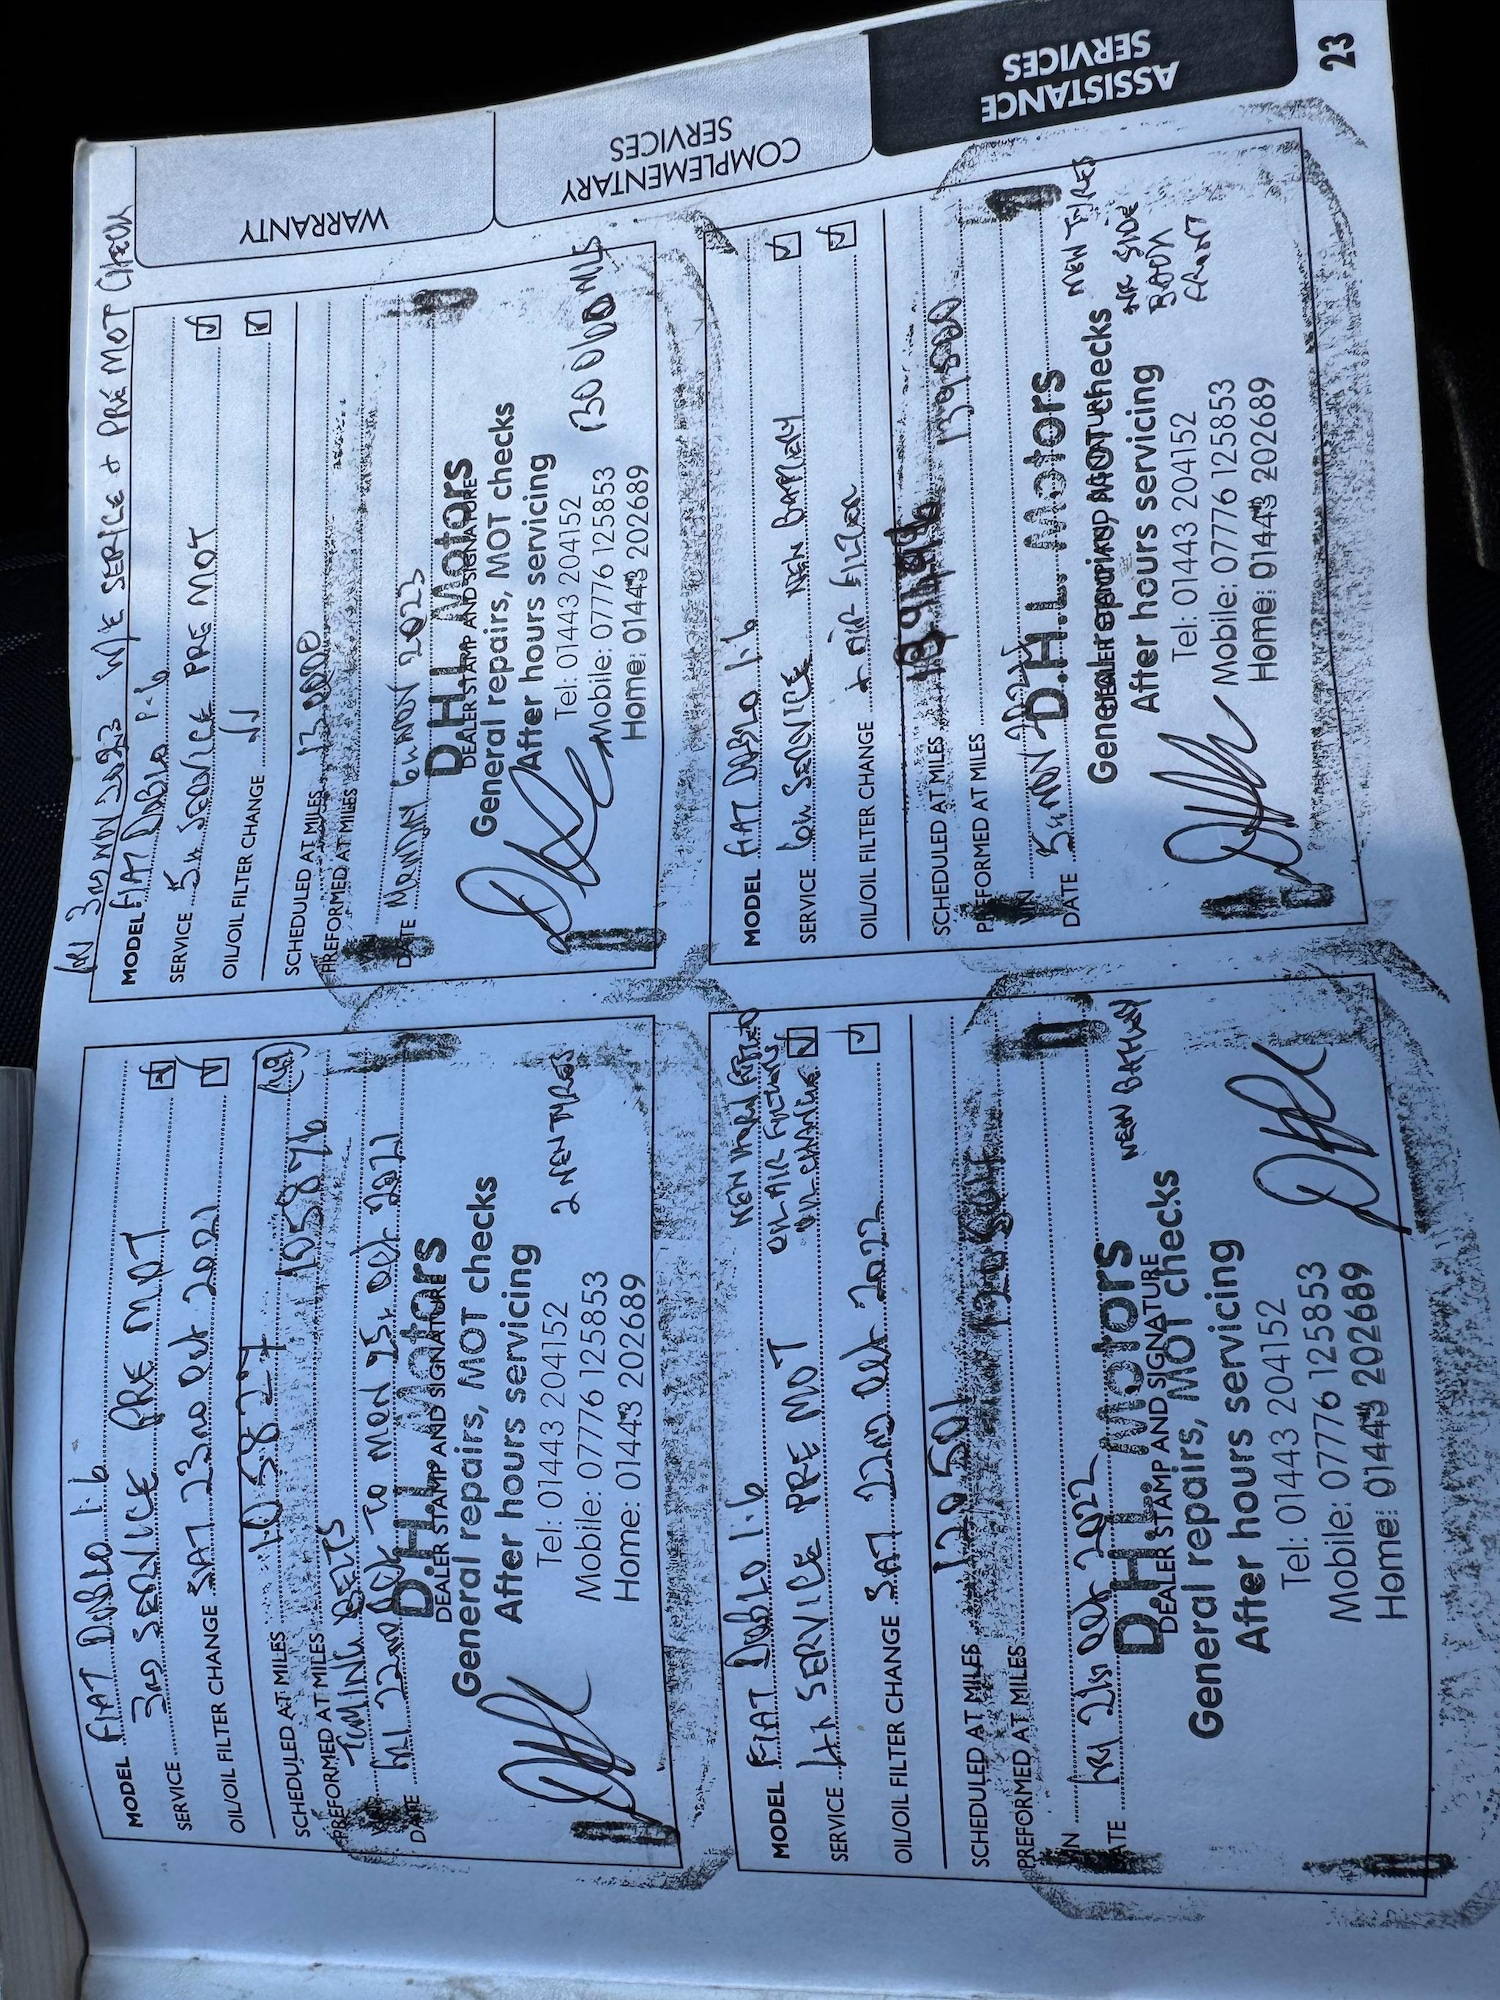 MODEL FIAT DOBLO 1.6
SERVICE 3RD SERVICE PRE MOT
OIL/OIL FILTER CHANGE SAT 23RD Oct 2021
105827
SCHEDULED AT MILES 105876
PREFORMED AT MILES
TIMING BELTS
DATE FRI 22ND Oct TO MON 25th Oct 2021
D.H.L. Motors
DEALER STAMP AND SIGNATURE
General repairs, MOT checks
After hours servicing
Tel: 01443 204152
Mobile: 07776 125853
Home: 01443 202689
2 NEW TYRES
MODEL FIAT DOBLO 1.6
SERVICE 4th SERVICE PRE MOT
OIL/OIL FILTER CHANGE SAT 22ND Oct 2022
OIL AIR FILTERS
OIL CHANGE
120501
SCHEDULED AT MILES
PREFORMED AT MILES
VIN
DATE FRI 21st Oct 2022
D.H.L. Motors
DEALER STAMP AND SIGNATURE
General repairs, MOT checks
After hours servicing
Tel: 01443 204152
Mobile: 07776 125853
Home: 01443 202689
NEW BATTERY
FRI 3RD NOV 2023 W/E SERVICE + PRE MOT CHECK
MODEL FIAT DOBLO 1.6
SERVICE 5th SERVICE PRE MOT
OIL/OIL FILTER CHANGE
SCHEDULED AT MILES 130000
PREFORMED AT MILES
DATE MONDAY 6th NOV 2023
D.H.L. Motors
DEALER STAMP AND SIGNATURE
General repairs, MOT checks
After hours servicing
Tel: 01443 204152
Mobile: 07776 125853
Home: 01443 202689
130 000 MLS
MODEL FIAT DOBLO 1.6
SERVICE 6th SERVICE NEW BATTERY
OIL/OIL FILTER CHANGE + AIR FILTER
SCHEDULED AT MILES 139500
PREFORMED AT MILES
VIN
DATE 5th NOV
D.H.L. Motors
DEALER STAMP AND SIGNATURE
General repairs, MOT checks
After hours servicing
Tel: 01443 204152
Mobile: 07776 125853
Home: 01443 202689
NEW TYRES
NR SIDE
FRONT
WARRANTY
COMPLEMENTARY
SERVICES
ASSISTANCE
SERVICES
23